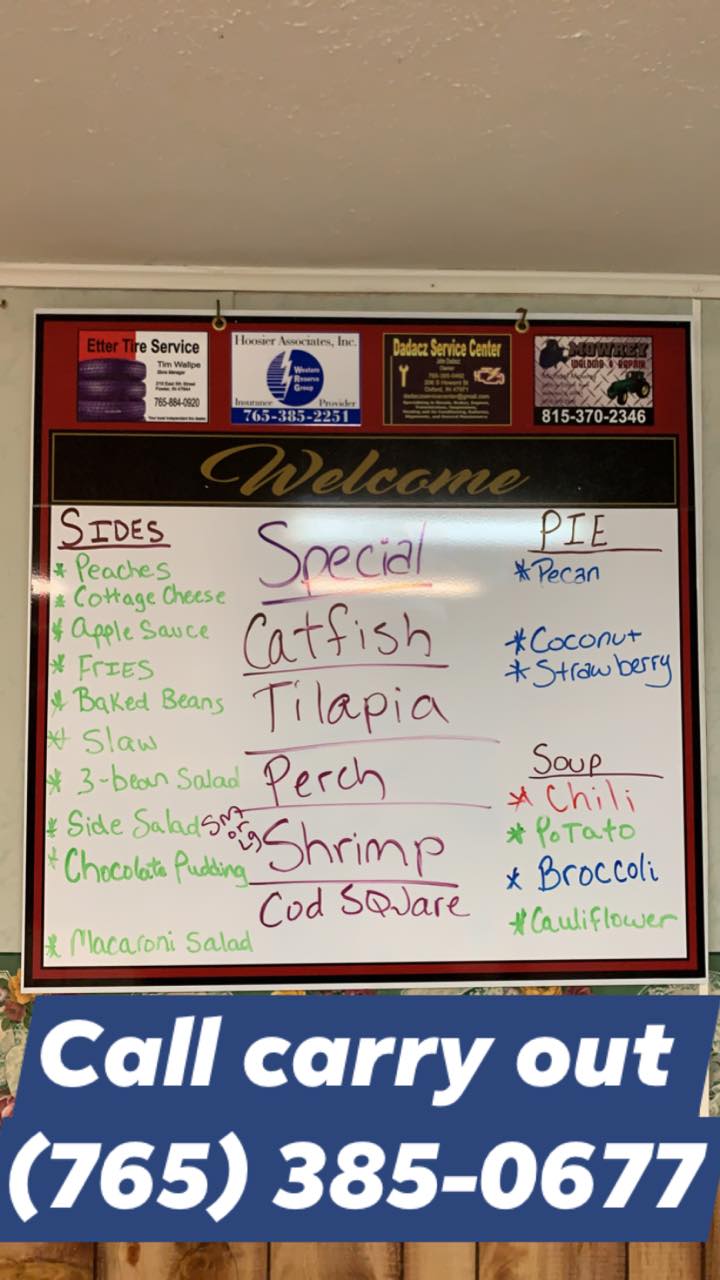 Etter Tire Service
Tim Wallpe
Store Manager
765-884-0920
Hoosier Associates, Inc.
Western
Reserve
Group
Insurance Provider
765-385-2251
Dadacz Service Center
Owner
MOWREY
WELDING & REPAIR
815-370-2346
Welcome
SIDES
* Peaches
* Cottage Cheese
* Apple Sauce
* FRIES
* Baked Beans
* Slaw
* 3-bean Salad
* Side Salad
* Chocolate Pudding
* Macaroni Salad
Special
Catfish
Tilapia
Perch
sm or lg Shrimp
Cod SQuare
PIE
* Pecan
* Coconut
* Strawberry
Soup
* Chili
* PoTaTo
* Broccoli
* Cauliflower
Call carry out
(765) 385-0677